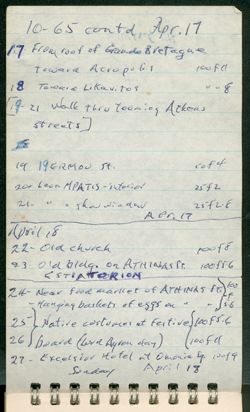 10-65 contd, Apr. 17
17 From roof of Grande Bretagne
Toward Acropolis 100 f 11
18 Toward Likavitos " " 8
[19-21 Walk thru teeming Athens
streets]
19 19 ERMOU St.
20 Leon MPATIS-interior 25 f 2
21 - " " show window 25 f 2.8
Apr. 17
April 18
22 - Old church 100 f 8
23 Old bldg. on ATHINAS St. 100 f 5.6
ESTIATORION
24 - Near food market of ATHINAS St.
- Hanging baskets of eggs on "
25 Native costumes at Festive 100 f 5.6
26 Board (Lord Byron day) 100 f 11
27 - Excelsior Hotel at Omonia Sq. 100 f 9
Sunday April 18